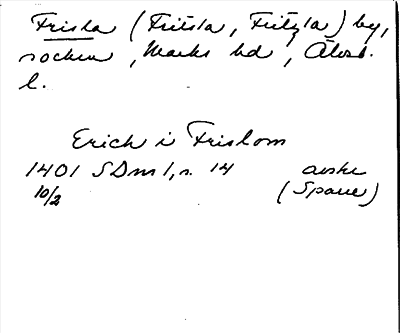 Frisla (Fritsla, Fritzla) by,
socken, Marks hd, Älvsb.
l.
Erich i Frislom
1401 SDm 1, s. 14 avskr
10/2 (Spaue)